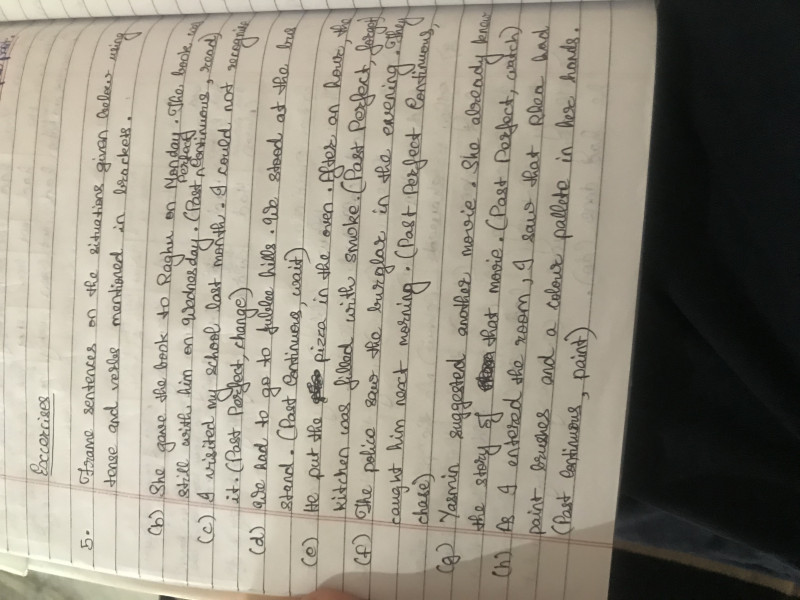 Excercises
5. Frame sentences on the situations given below using
tense and verbs mentioned in brackets.
(b) She gave the book to Raghu on Monday. The book was
still with him on Wednesday. (Past Perfect Continuous, read)
(c) I visited my school last month. I could not recognise
it. (Past Perfect, change)
(d) We had to go to Jubilee hills. We stood at the bus
stand. (Past Continuous, wait)
(e) He put the pizza in the oven. After an hour, the
kitchen was filled with smoke. (Past Perfect, forget)
(f) The police saw the burglar in the evening. They
caught him next morning. (Past Perfect Continuous,
chase)
(g) Yasmin suggested another movie. She already knew
the story of that movie. (Past Perfect, watch)
(h) As I entered the room, I saw that Rhea had
paint brushes and a colour pallete in her hands.
(Past Continuous, paint)